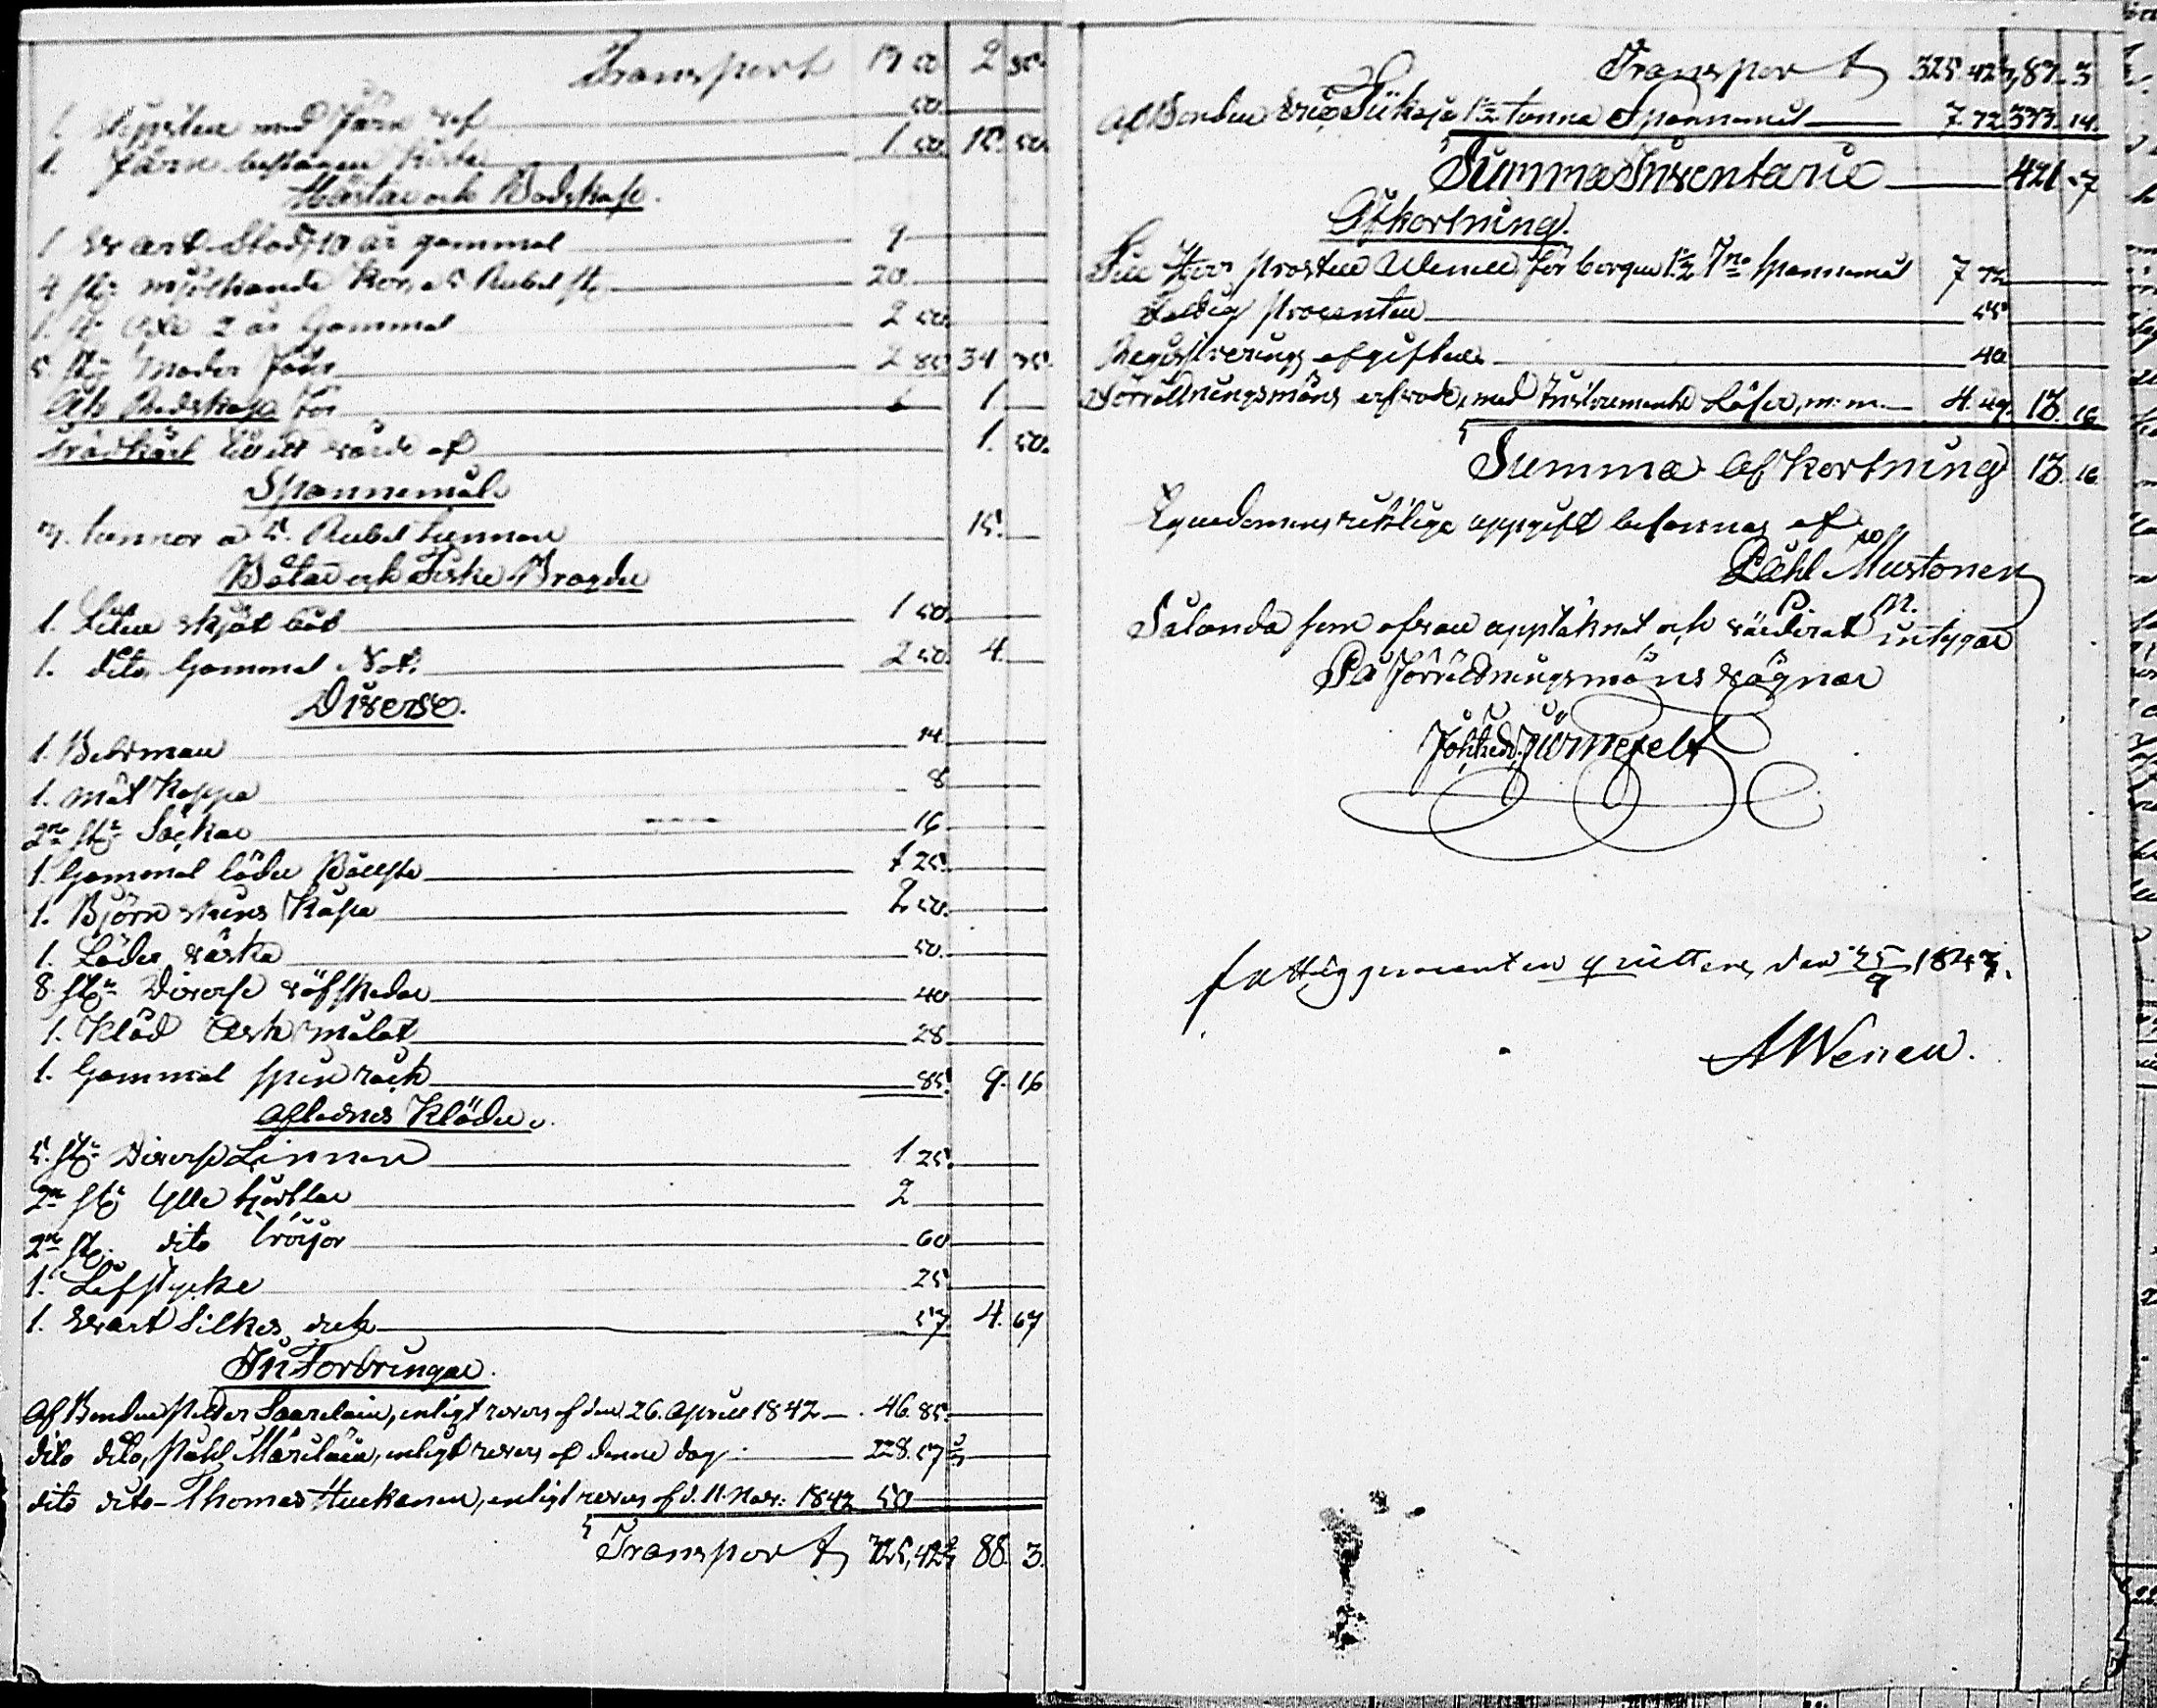 Transport 13 50 2 80.
1. med Järn 50.
1. Järn beslagen Kärra 1 50. 15. 50.
Hästar och Bodskap.
1 Svart Stod, 10 år gammal 9
4 st: mjölkande Kor, a 5 Rubel st 20.
1. st: Oxe 2 år Gammal 2 50.
5. st: Moder Får 2 85 34 35.
Åk Redskap för 1
Trädkäril till ett värde af 1. 50.
Spannemål.
3. tunnor a 5. Rubel tunnan 15.
Båtar och Fiske Bragder
1. Liten skjöt båt 1 50.
1. dito Gammal Not. 2 50. 4.
Diverse.
1. Betsman 14.
1. mät Kappa 8
2ne st: Säckar 16
1. Gammal läder 1 25.
1. Björn skins Kapa 2 50.
1. Läder väska 50.
8. st: Diverse räfskedar 40
1. Kläd Ask målat 28
1. Gammal spin rock 85. 9. 16
Aflednes Kläder.
5. st: Diverse Linnen 1 25.
2ne st: Ylle kjortlar 2
2ne st: dito tröijor 60
1. Lifstycke 25
1. Svart Silkes duk 57. 4. 67
In Fordringar.
Af Bonden Petter Saarelain, enligt revers af den 26. April 1842 46. 85.
dito dito, Påhl Märiläin, enligt revers af denne dag 228. 57
dito dito Thomas Huckanen, enligt revers af d. 11. Nov: 1842 50
Transport 325, 42 88. 3.
Transport 325. 42 87. 3
Af Bonden Eric 1½ tunna Spannemål 7. 72 333. 14.
Summa Inventarie 421. 17
Afkortning.
Till Herr Prosten Wenell för borgen 1½ Tna spannemål 7 72
Fattig Procenten 55
Registrerings afgiften 40
Förrättningsmäns arfvode, med Instrumente Lösen, m:m. 4. 49. 13. 16
Summa Afkortning 13. 16
Egendomens riktiga uppgift besannas af
Påhl Mustonen
P. M.
Sålunda som ofvan upptäknat och värderat intygar
På Förrättningsmäns vägnar
Joh: Ed. Järnefelt
fattig procenten quitteras, den 25/9 1843.
A Wenell.